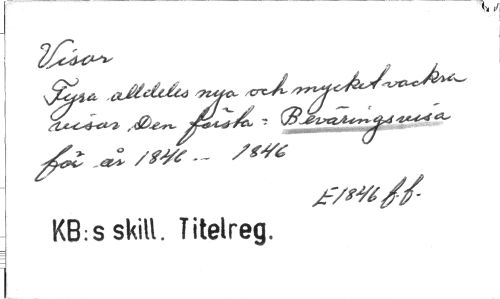 Visor
Fyra alldeles nya och mycket vackra
visor Den första = Beväringsvisa
för år 1846 .. 1846
E1846 f.f.
KB:s skill. Titelreg.